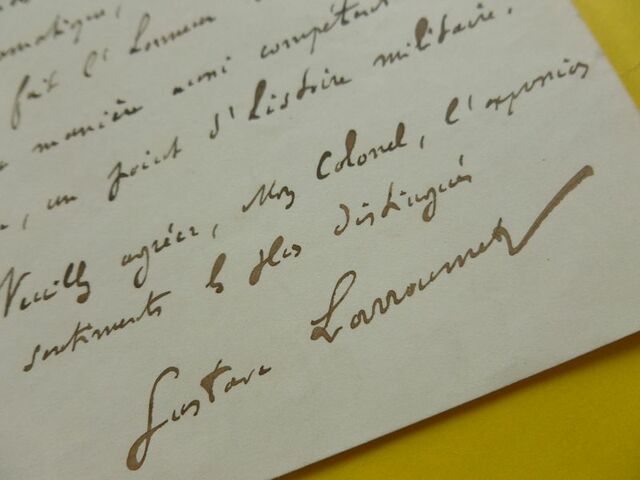 omatique,
fait l'honneur
manière aussi compétente
, un point d'histoire militaire.
Veuillez agréer, Mon Colonel, l'expression
sentiments les plus distingués
Gustave Larroumet